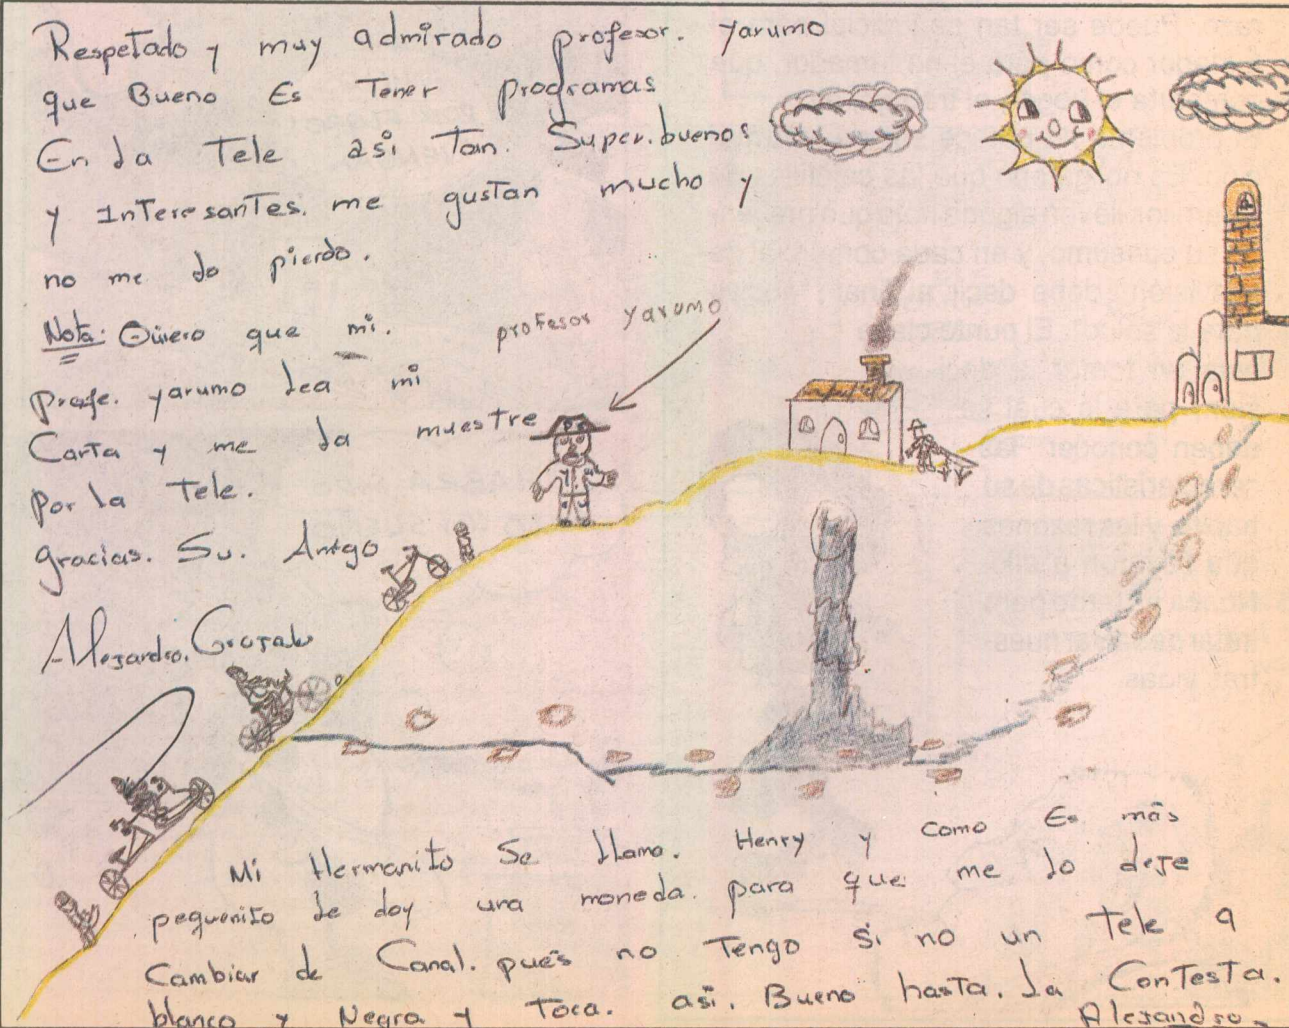 Respetado y muy admirado profesor. yarumo
que Bueno Es Tener programas
En la Tele asi Tan. Super.buenos
y InTeresanTes. me gusTan mucho y
no me lo pierdo.
Nota: Qüiero que mi.
profe. yarumo lea mi
Carta y me la muestre
por la Tele.
gracias. Su. Amigo
Alejandro.
profesor yarumo
Mi Hermanito Se llama. Henry y como Es más
pequeñito le doy una moneda. para que me lo deje
Cambiar de Canal. pués no Tengo si no un Tele a
blanco y Negra y Toca. asi. Bueno hasta. la ConTesTa.
Alejandro.